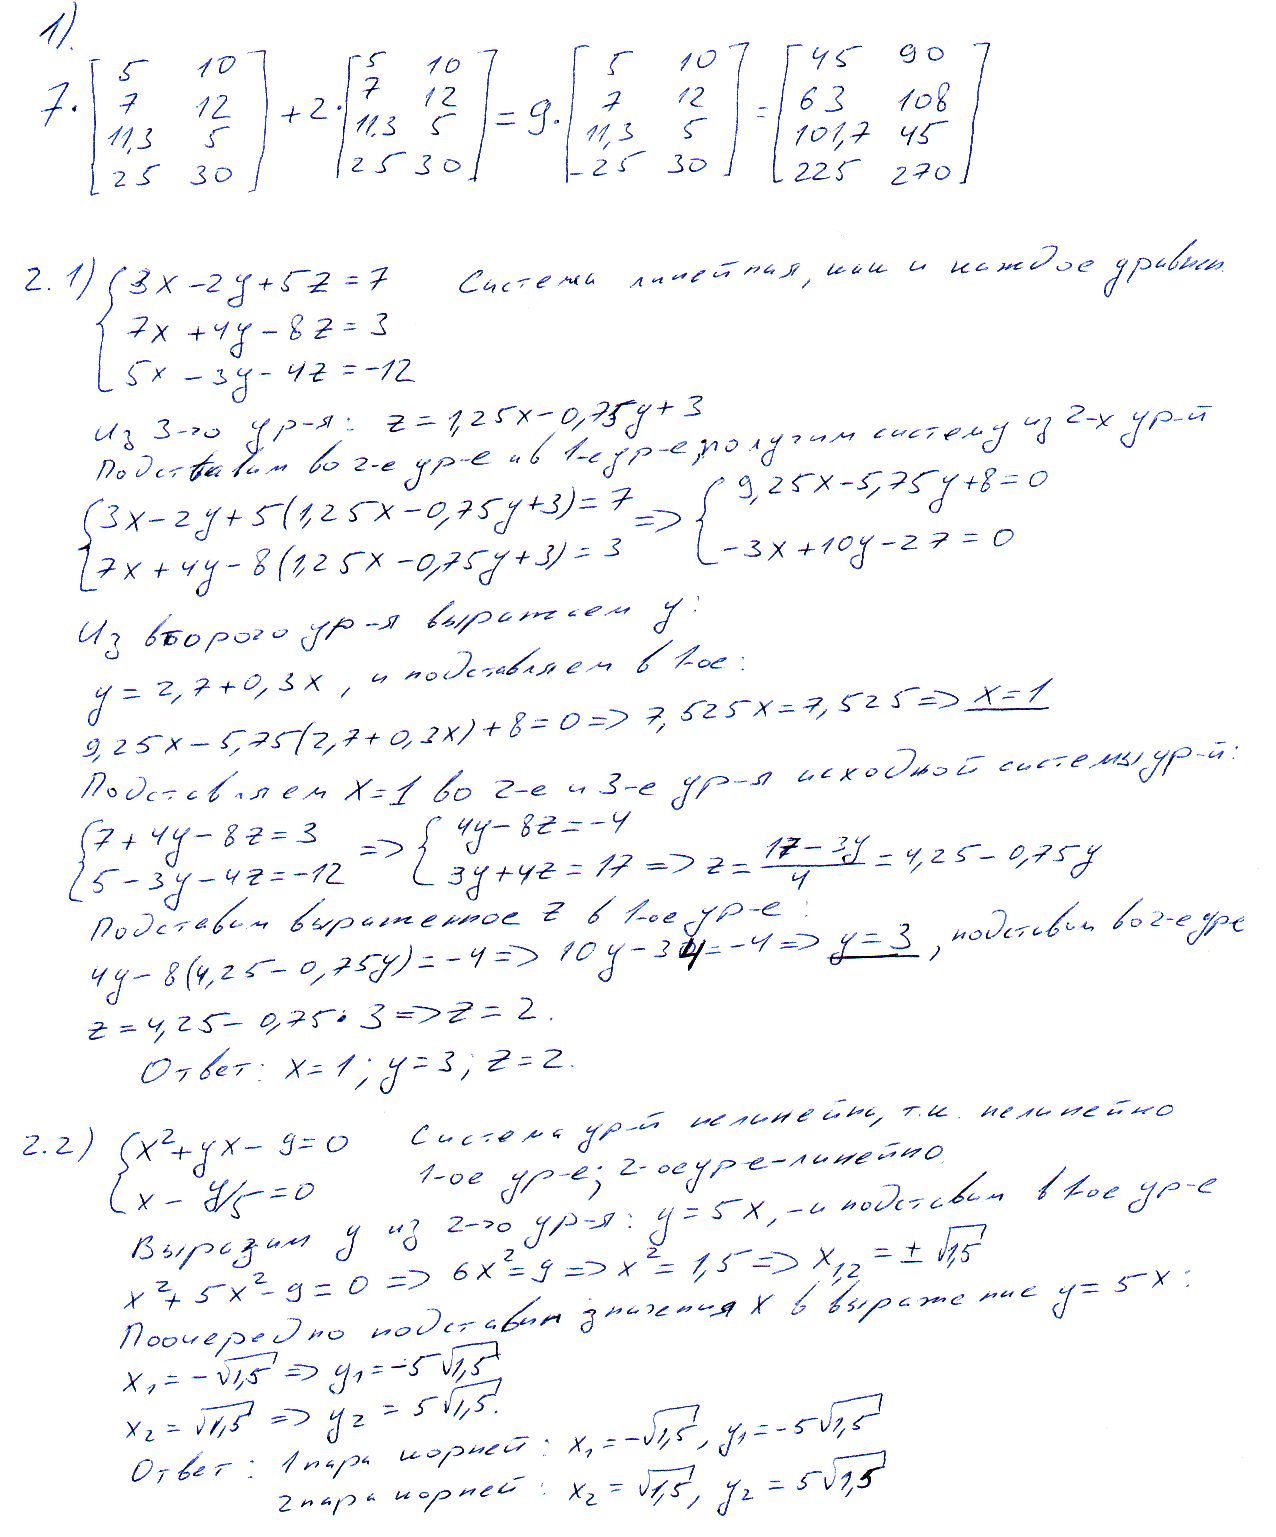 1).
7·[5 10; 7 12; 11,3 5; 25 30] + 2·[5 10; 7 12; 11,3 5; 25 30] = 9·[5 10; 7 12; 11,3 5; 25 30] = [45 90; 63 108; 101,7 45; 225 270]
2.1) {3x-2y+5z=7 Система линейная, как и каждое уравнен.
7x+4y-8z=3
5x-3y-4z=-12
Из 3-го ур-я: z=1,25x-0,75y+3
Подставим во 2-е ур-е и в 1-е ур-е, получим систему из 2-х ур-й
{3x-2y+5(1,25x-0,75y+3)=7 => {9,25x-5,75y+8=0
7x+4y-8(1,25x-0,75y+3)=3 -3x+10y-27=0
Из второго ур-я выражаем y:
y=2,7+0,3x, и подставляем в 1-ое:
9,25x-5,75(2,7+0,3x)+8=0 => 7,525x=7,525 => x=1
Подставляем x=1 во 2-е и 3-е ур-я исходной системы ур-й:
{7+4y-8z=3 => {4y-8z=-4
5-3y-4z=-12 3y+4z=17 => z=(17-3y)/4=4,25-0,75y
Подставим выраженное z в 1-ое ур-е:
4y-8(4,25-0,75y)=-4 => 10y-34=-4 => y=3, подставим во 2-е ур-е
z=4,25-0,75·3 => z=2.
Ответ: x=1; y=3; z=2.
2.2) {x²+yx-9=0 Система ур-й нелинейна, т.к. нелинейно
x-y/5=0 1-ое ур-е; 2-ое ур-е-линейно
Выразим y из 2-го ур-я: y=5x, -и подставим в 1-ое ур-е
x²+5x²-9=0 => 6x²=9 => x²=1,5 => x1,2=±√1,5
Поочередно подставим значения x в выражение y=5x:
x1=-√1,5 => y1=-5√1,5
x2=√1,5 => y2=5√1,5.
Ответ: 1 пара корней: x1=-√1,5, y1=-5√1,5
2 пара корней: x2=√1,5, y2=5√1,5